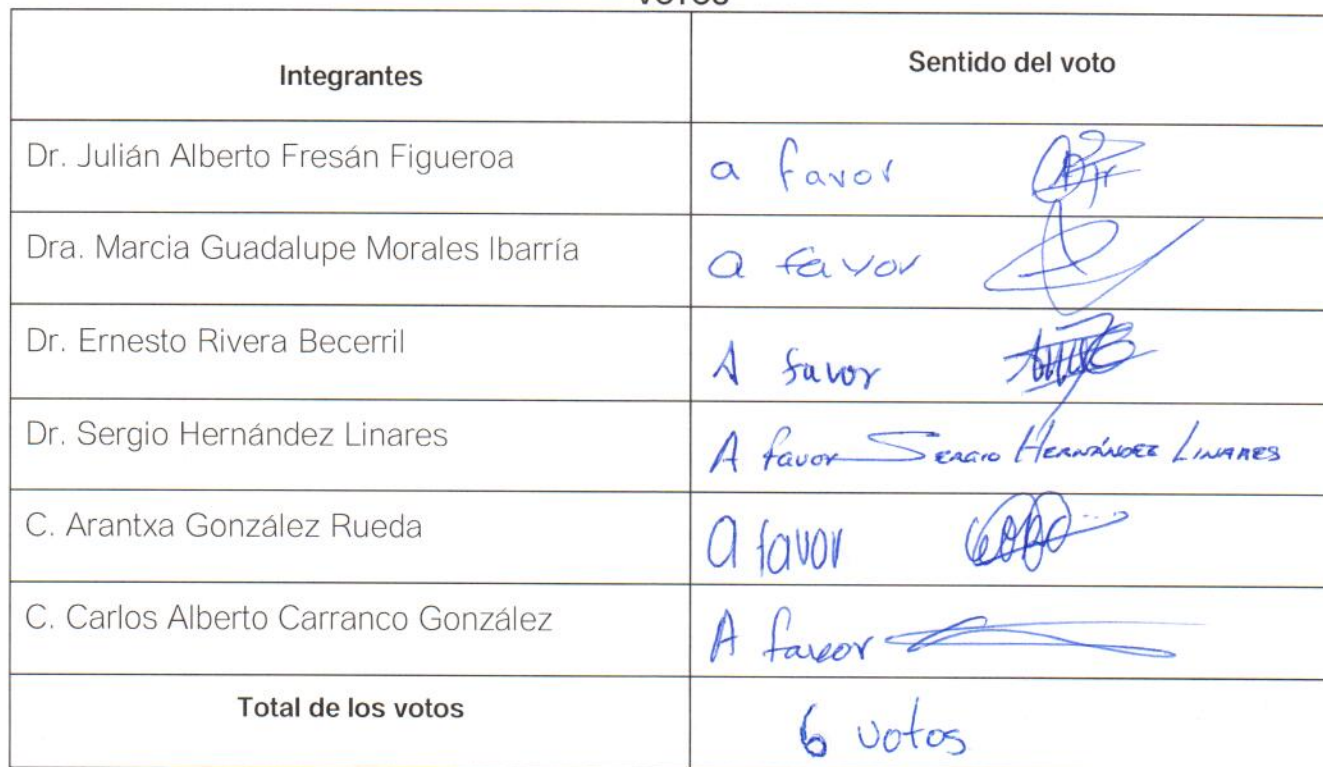 Votos
Integrantes Sentido del voto
Dr. Julián Alberto Fresán Figueroa a favor
Dra. Marcia Guadalupe Morales Ibarría a favor
Dr. Ernesto Rivera Becerril A favor
Dr. Sergio Hernández Linares A favor SERGIO HERNÁNDEZ LINARES
C. Arantxa González Rueda a favor
C. Carlos Alberto Carranco González A favor
Total de los votos 6 votos